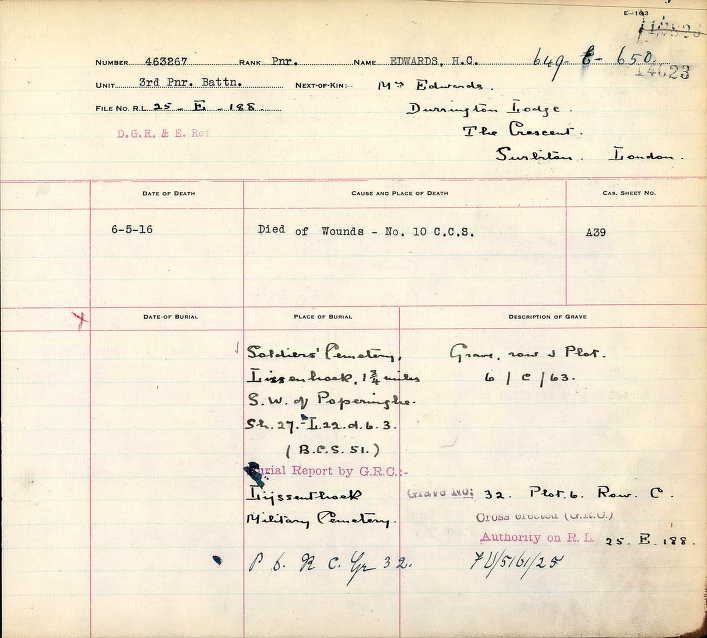 E-193
14023
NUMBER 463267 RANK Pnr. NAME EDWARDS, H.C. 649-E-650.
UNIT 3rd Pnr. Battn. NEXT-OF-KIN:- Mrs Edwards.
FILE NO. R.L. 25 - E - 188. Durrington Lodge.
D.G.R. & E. Ref The Crescent.
Surbiton. London.
DATE OF DEATH CAUSE AND PLACE OF DEATH CAS. SHEET NO.
6-5-16 Died of Wounds - No. 10 C.C.S. A39
DATE OF BURIAL PLACE OF BURIAL DESCRIPTION OF GRAVE
Soldiers' Cemetery, Grave, row & Plot.
Lissenhoek, 1¾ miles 6 / C / 63.
S.W. of Poperinghe.
Sh. 27.-L.22.d.6.3.
(B.C.S. 51.)
Burial Report by G.R.C.:-
Lijssenthoek Grave No: 32. Plot.6. Row. C.
Military Cemetery. Cross erected (G.R.C.)
Authority on R.L. 25. E. 188.
P 6. R C. Gr 32.